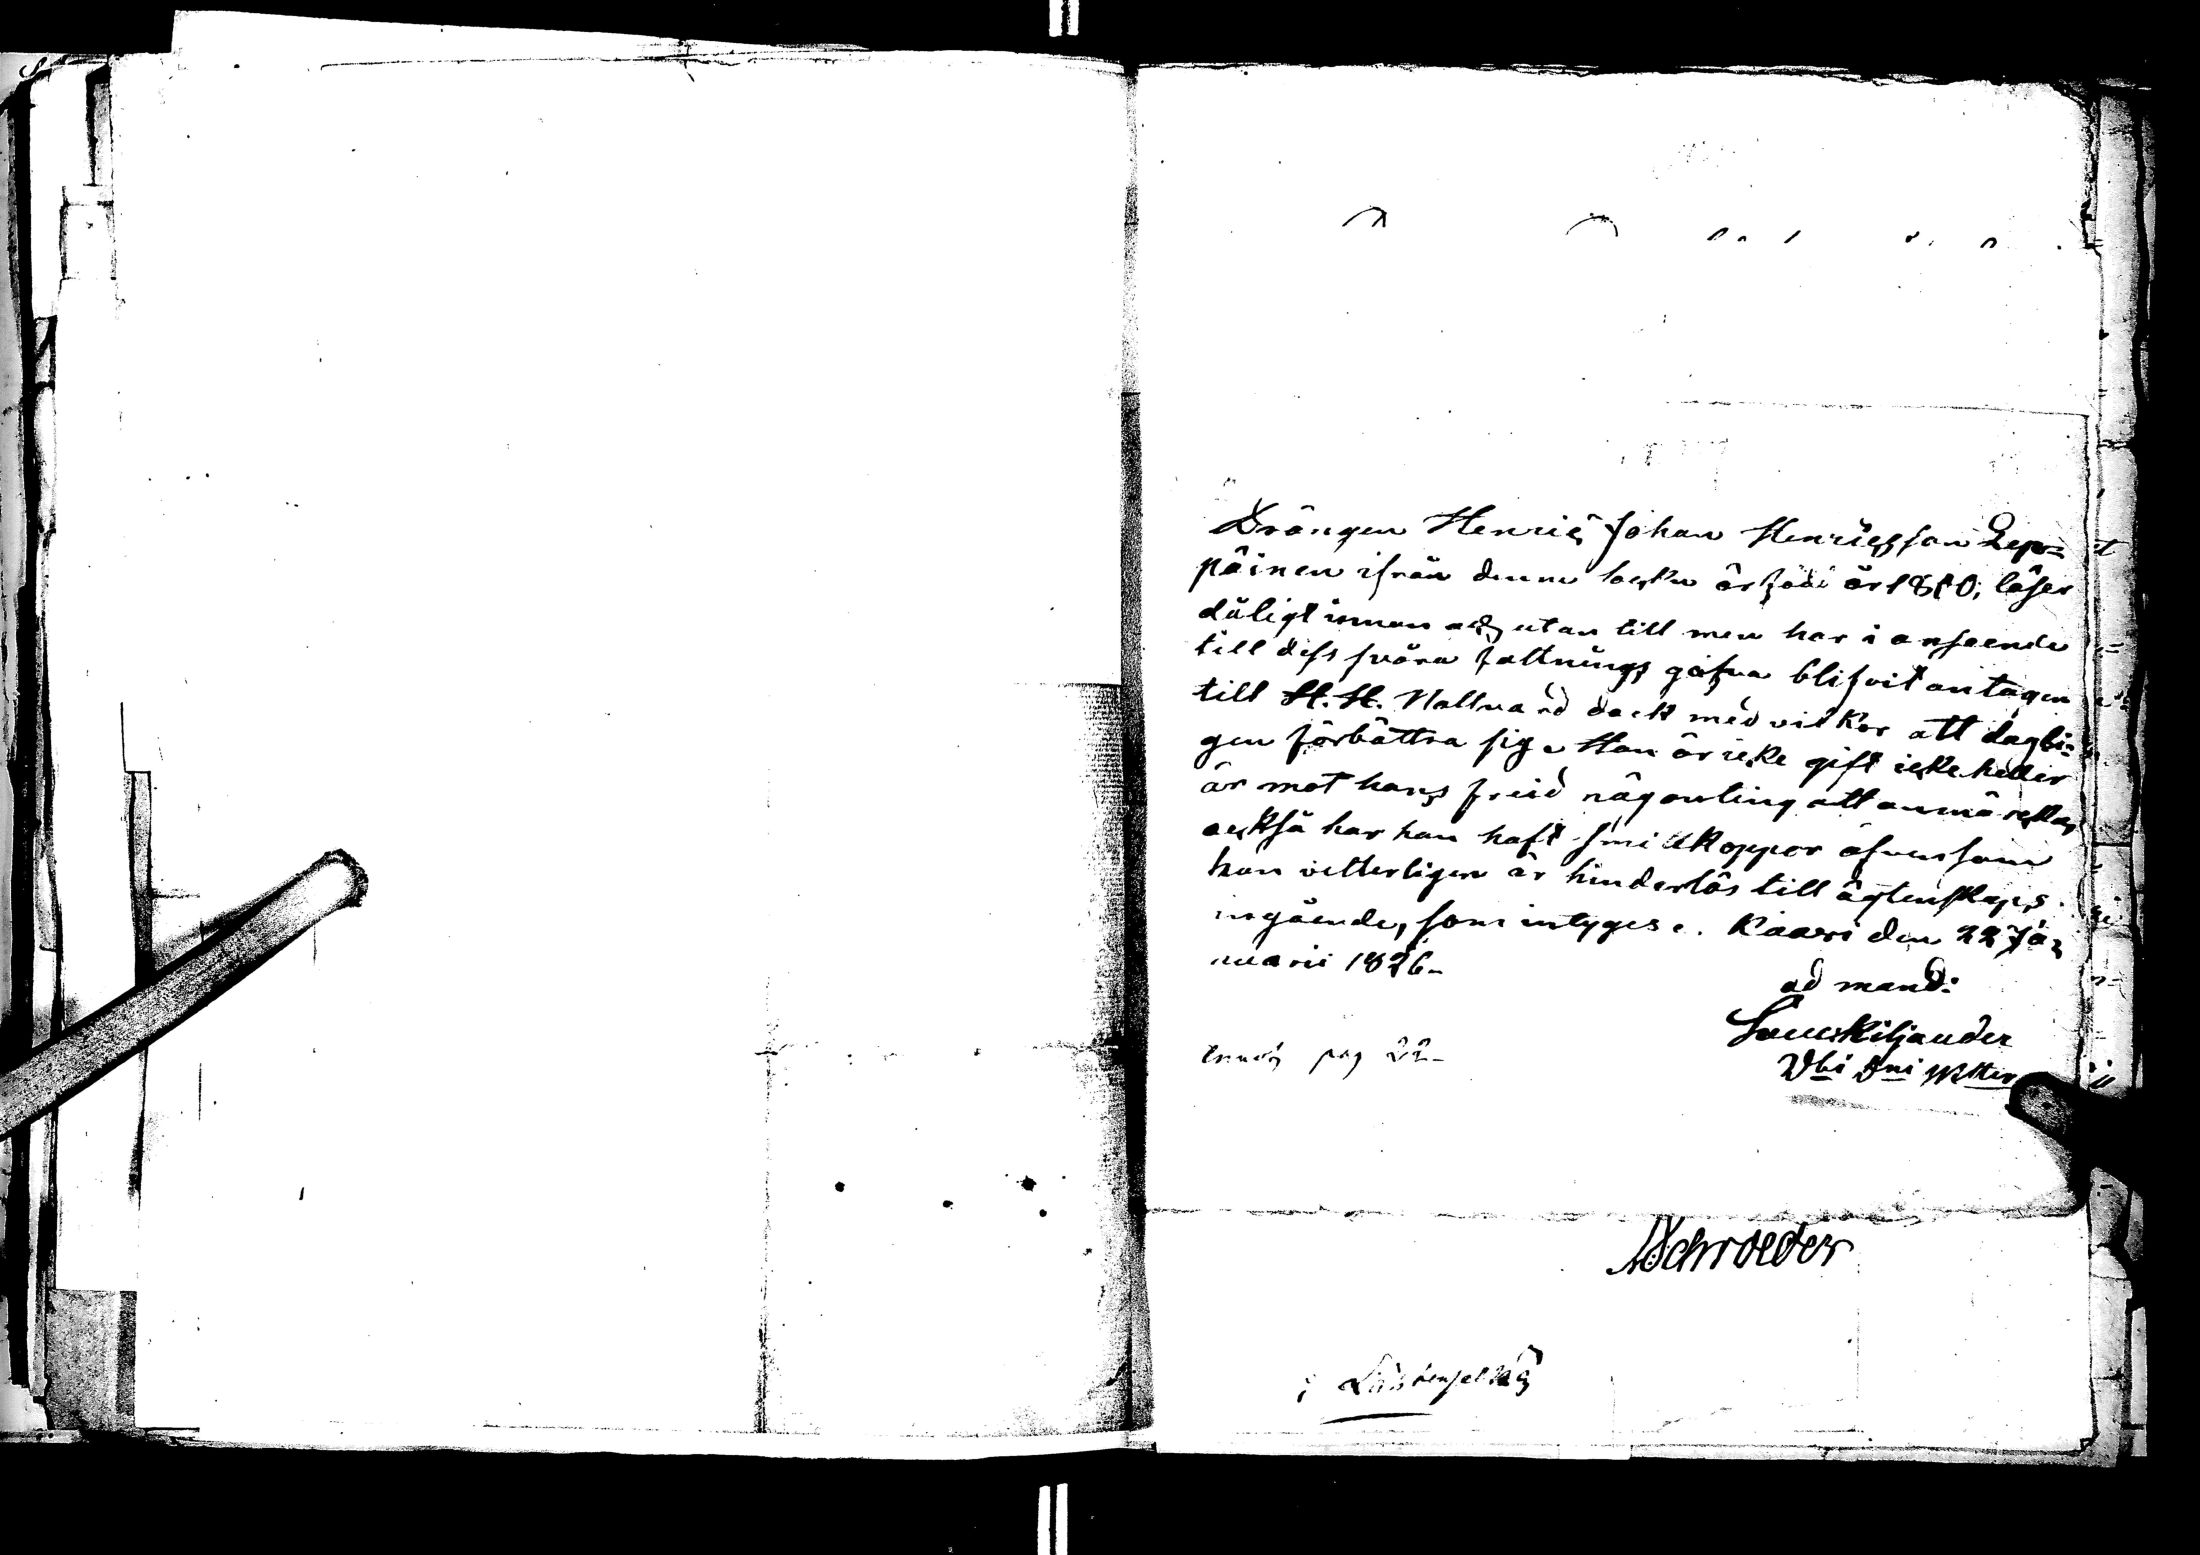 Drängen Henric Johan Henricsson Lep=
päinen ifrån denna sockn är född år 1810, läser
dåligt innan och utan till men har i anseende
till dess svåra fattnings gåfva blifvit antagen
till H. H. Nattvard dock med vilkor att dagli=
gen förbättra sig. Han är icke gift icke heller
är mot hans freid någonting att anmärka,
också har han haft smittkoppor äfvensom
han vetterligen är hinderlös till ägtenskaps
ingående, som intyges. Kaavi den 22 Ja=
nuarii 1826.
ad mand:
Kiljander
Vbi Dni Mster
pag 22.
Schroeder